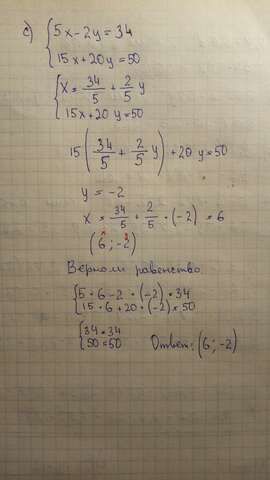 c) { 5x-2y=34
15x+20y=50
{ x = 34/5 + 2/5 y
15x+20y=50
15(34/5 + 2/5 y) + 20y=50
y = -2
x = 34/5 + 2/5 · (-2) = 6
(6; -2)
равенство
{ 5·6-2·(-2)=34
15·6+20·(-2)=50
{ 34=34
50=50 Ответ: (6; -2)